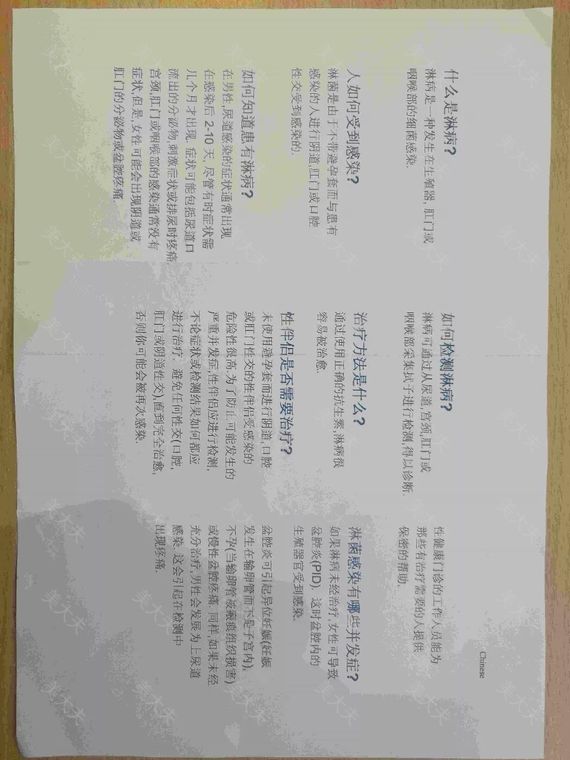 Chinese
什么是淋病?
淋病是一种发生在生殖器、肛门或
咽喉部的细菌感染.
人如何受到感染?
淋菌是由于不带避孕套而与患有
感染的人进行阴道,肛门或口腔
性交受到感染的.
如何知道患有淋病?
在男性,尿道感染的症状通常出现
在感染后 2-10 天, 尽管有时症状需
几个月才出现. 症状可能包括尿道口
流出的分泌物,刺激症状或排尿时疼痛.
宫颈,肛门或咽喉部的感染通常没有
症状,但是,女性可能会出现阴道或
肛门的分泌物或盆腔疼痛.
如何检测淋病?
淋病可通过从尿道,宫颈,肛门或
咽喉部采集拭子进行检测,得以诊断.
治疗方法是什么?
通过使用正确的抗生素,淋病很
容易被治愈.
性伴侣是否需要治疗?
未使用避孕套而进行阴道,口腔
或肛门性交的性伴侣受感染的
危险性很高.为了防止可能发生的
严重并发症,性伴侣应进行检测,
不论症状或检测结果如何都应
进行治疗. 避免任何性交(口腔,
肛门或阴道性交),直到完全治愈,
否则你可能会被再次感染.
性健康门诊的工作人员能为
那些有治疗需要的人提供
保密的帮助.
淋菌感染有哪些并发症?
如果淋病未经治疗,女性可导致
盆腔炎(PID). 这时盆腔内的
生殖器官受到感染.
盆腔炎可引起异位妊娠(妊娠
发生在输卵管而不是子宫内),
不孕(当输卵管被瘢痕组织损害)
或慢性盆腔疼痛. 同样,如果未经
充分治疗,男性会发展为上尿道
感染. 这会引起在检测中
出现疼痛.